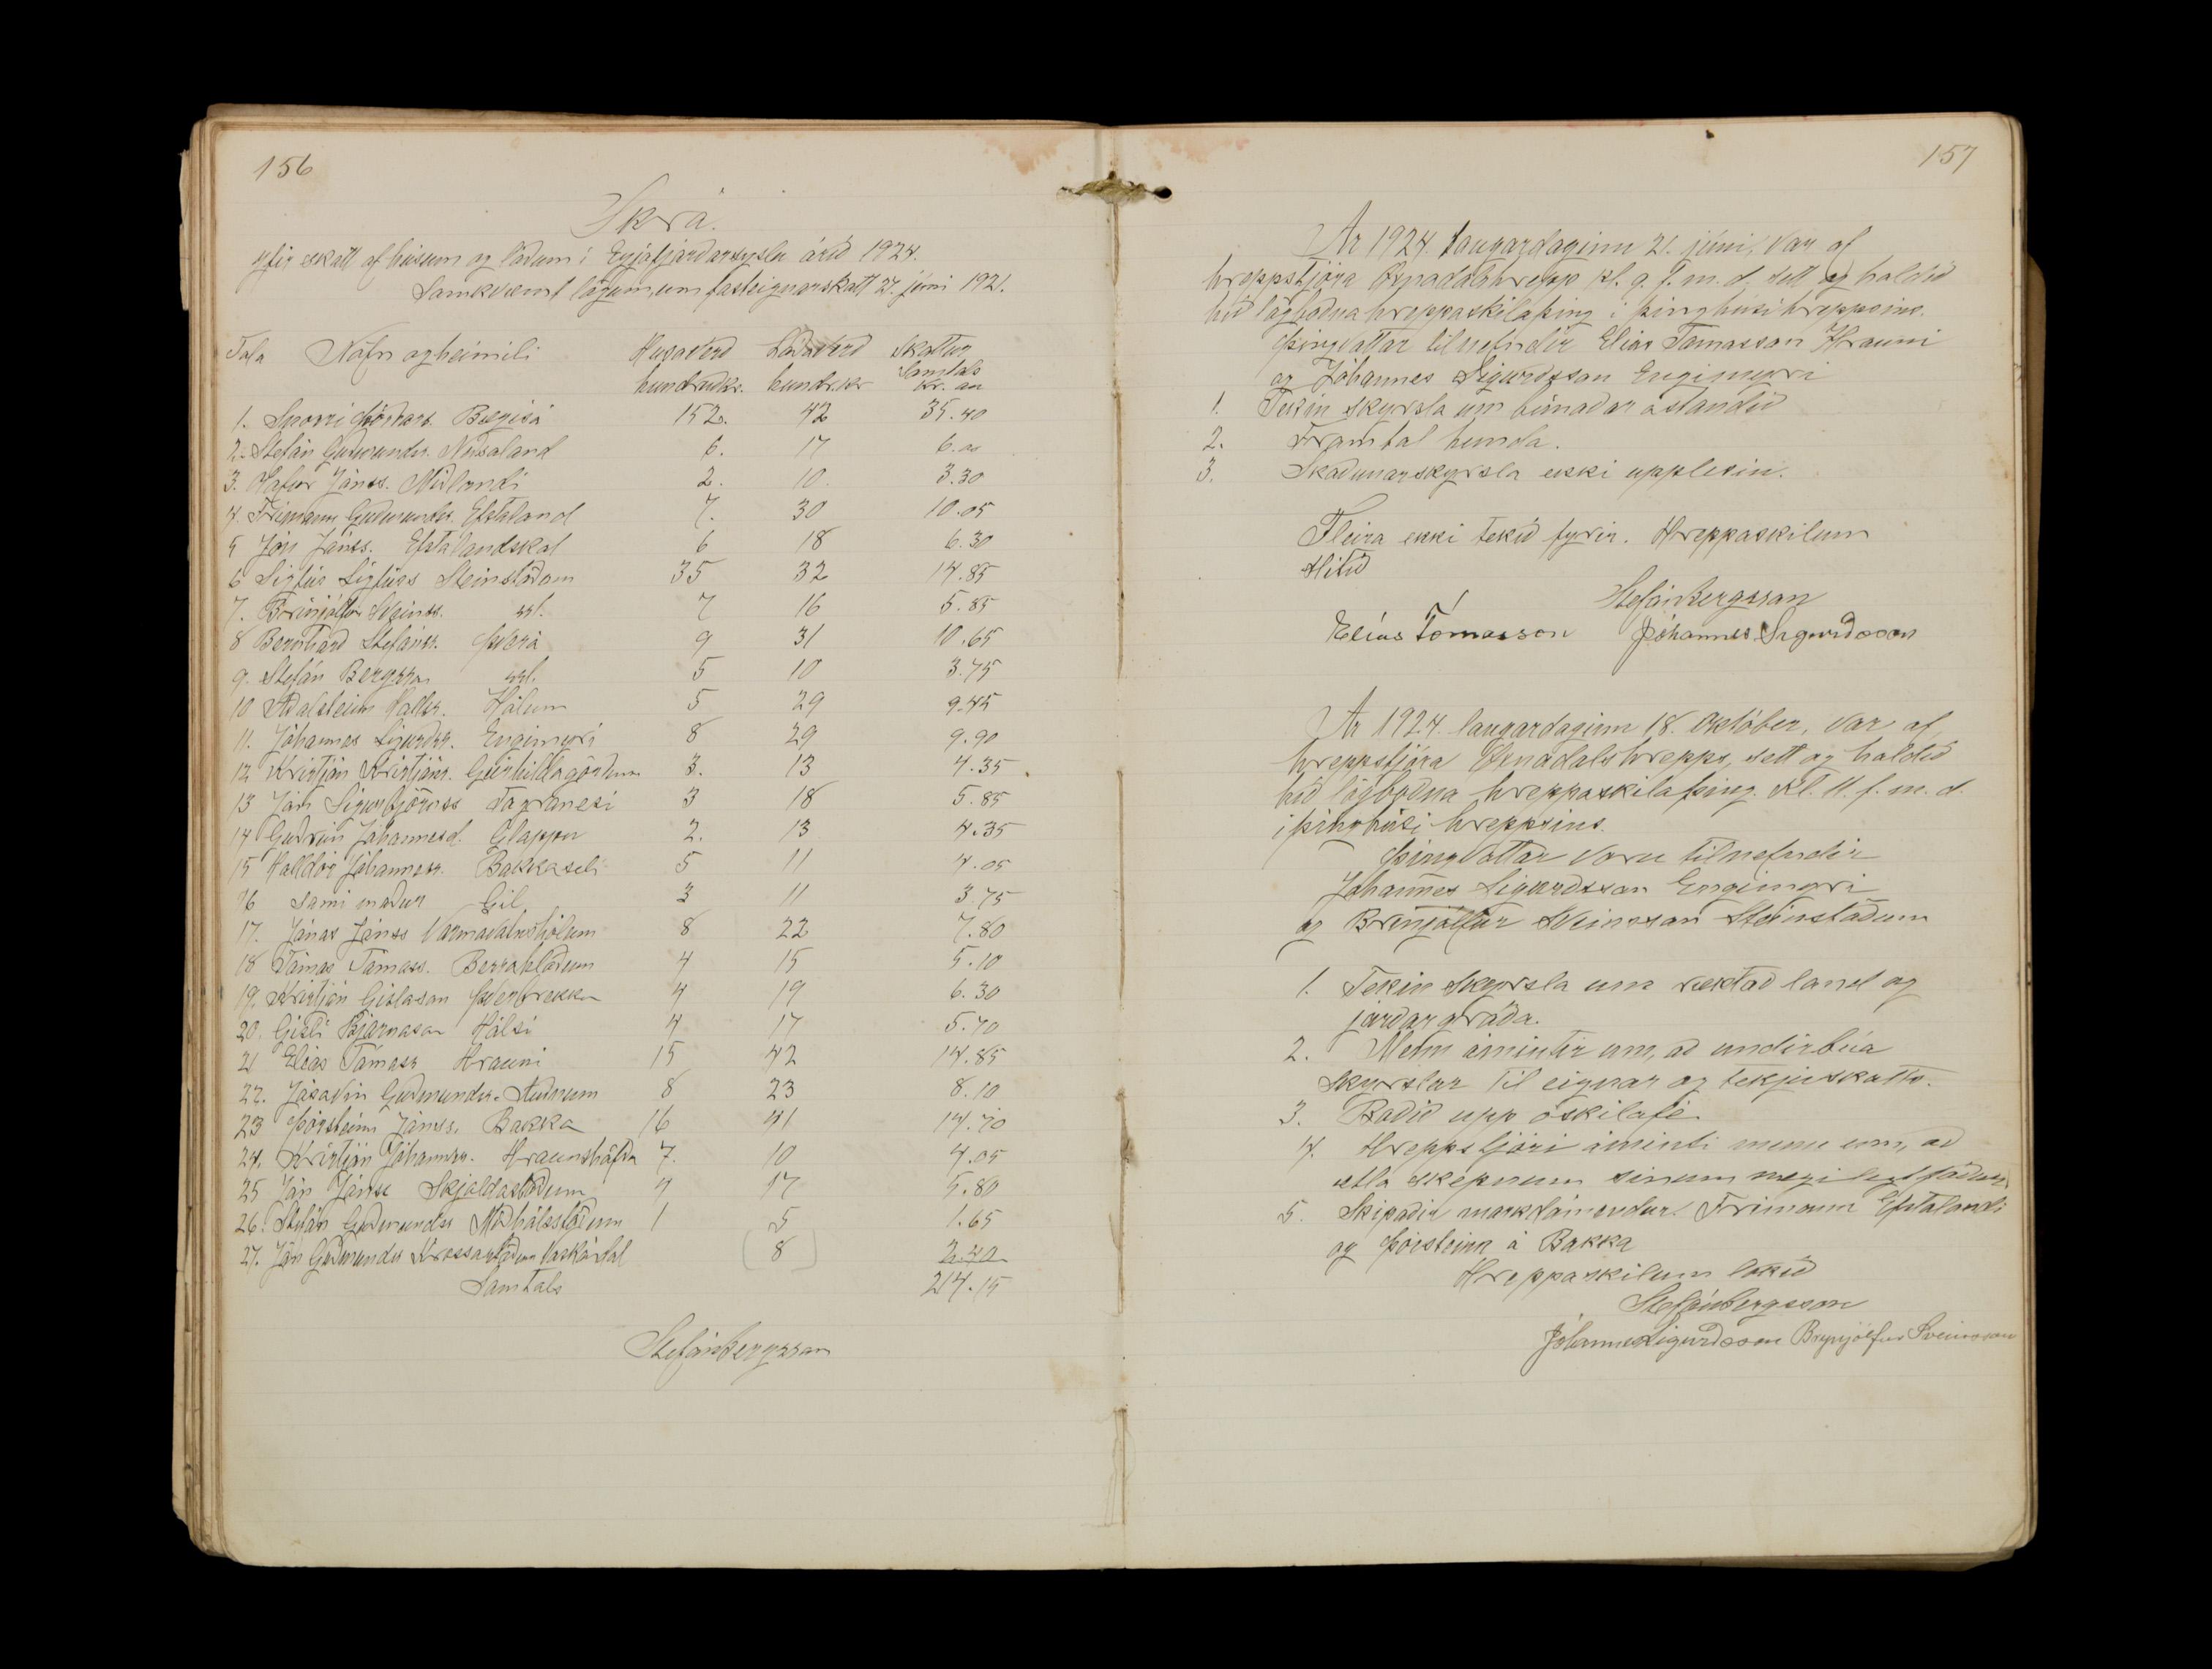 156
Skrá.
yfir skatt af húsum og lóðum í Eyjafjarðarsýslu árið 1924.
Samkvæmt lögum um fasteignarskatt 27. júní 1921.
Tala Nöfn og heimili Húsaverð Lóðaverð Skattur
hundruðkr. hundr.kr Samtals
kr. au
1. Snorri Þórðars. Bægisá 152. 42 35.40
2. Stefán Guðmundss. Neðsaland 6. 17 6.00
3. Ólafur Jónss. Miðlandi 2. 10. 3.30
4. Frímann Guðmundss. Efstaland 7. 30 10.05
5 Jón Jónss. Efstalandskot 6 18 6.30
6 Sigfús Sigfúss Steinstöðum 35 32 14.85
7. Brinjólfur Sveinss. sst. 7 16 5.85
8 Bernharð Stefánss. Þverá 9 31 10.65
9. Stefán Bergsson sst. 5 10 3.75
10 Aðalsteinn Hallss. Hólum 5 29 9.45
11. Jóhannes Sigurðss. Engimýri 8 29 9.90
12 Kristján Kristjáns. Geirhildagörðum 3. 13 4.35
13 Jón Sigurbjörnss Fagranesi 3 18 5.85
14 Guðrún Jóhannesd. Gloppu 2. 13 4.35
15 Halldór Jóhanness. Bakkaseli 5 11 4.05
16 sami maður Gil 3 11 3.75
17. Jónas Jónss Varmavatnshólum 8 22 7.80
18 Tómas Tómass. Bessahlöðum 4 15 5.10
19. Kristján Gíslason Þverbrekku 4 19 6.30
20. Gísli Bjarnason Hálsi 4 17 5.70
21 Elías Tómass Hrauni 15 42 14.85
22. Jósavin Guðmundss. Auðnum 8 23 8.10
23 Þorsteinn Jónss. Bakka 16 41 14.70
24. Kristján Jóhannss. Hraunshöfða 7. 10 4.05
25 Jón Jónss Skjaldastöðum 4 17 5.80
26. Stefán Guðmundss Miðhálsstöðum 1 5 1.65
27. Jón Guðmundss Krossastöðum Vaskárdal (8) 2.40
Samtals 214.15
Stefán Bergsson
157
Ár 1924. laugardaginn 21. júní, var af
hreppstjóra Öxnadalshrepp kl. 9. f. m. d. sett og haldið
hið lögboðna hreppaskilaþing í þinghúsi hreppsins.
Þingvottar tilnefndir Elías Tómasson Hrauni
og Jóhannes Sigurðsson Engimýri
1. Tekin skyrsla um búnaðar ástandið
2. Framtal hunda.
3. Skoðunarskyrsla ekki upplesin.
Fleira ekki tekið fyrir. Hreppaskilum
slitið
Stefán Bergsson
Elías Tómasson Jóhannes Sigurðsson
Ár 1924. laugardaginn 18. október, var af
hreppstjóra Öxnadalshrepps, sett og haldið
hið lögboðna hreppaskilaþing. kl. 11. f. m. d.
í þinghúsi hreppsins.
Þingvottar voru tilnefndir
Jóhannes Sigurðsson Engimýri
og Brinjólfur Sveinsson Steinstöðum
1. Tekin skyrsla um ræktað land og
jarðargróða.
2. Menn ámintir um, að undirbúa
skyrslur til eignar og tekjuskatts.
3. Boðið upp óskilafé.
4. Hreppstjóri áminti menn um, að
ætla skepnum sínum nægilegt fóður
5. Skipaðir markdómendur. Frímann Efstalandi
og Þorsteinn á Bakka
Hreppaskilum lokið
Stefán Bergsson
Jóhannes Sigurðsson Brynjólfur Sveinsson